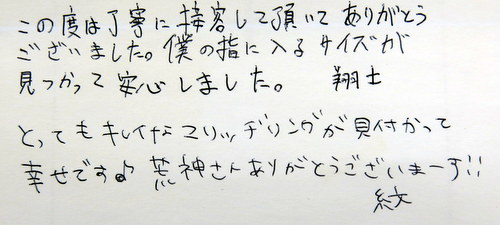 この度は丁寧に接客して頂いてありがとう
ございました。僕の指に入るサイズが
見つかって安心しました。 翔士
とってもキレイなマリッヂリングが見付かって
幸せです♪ 荒神さんありがとうございまーす!!
紋